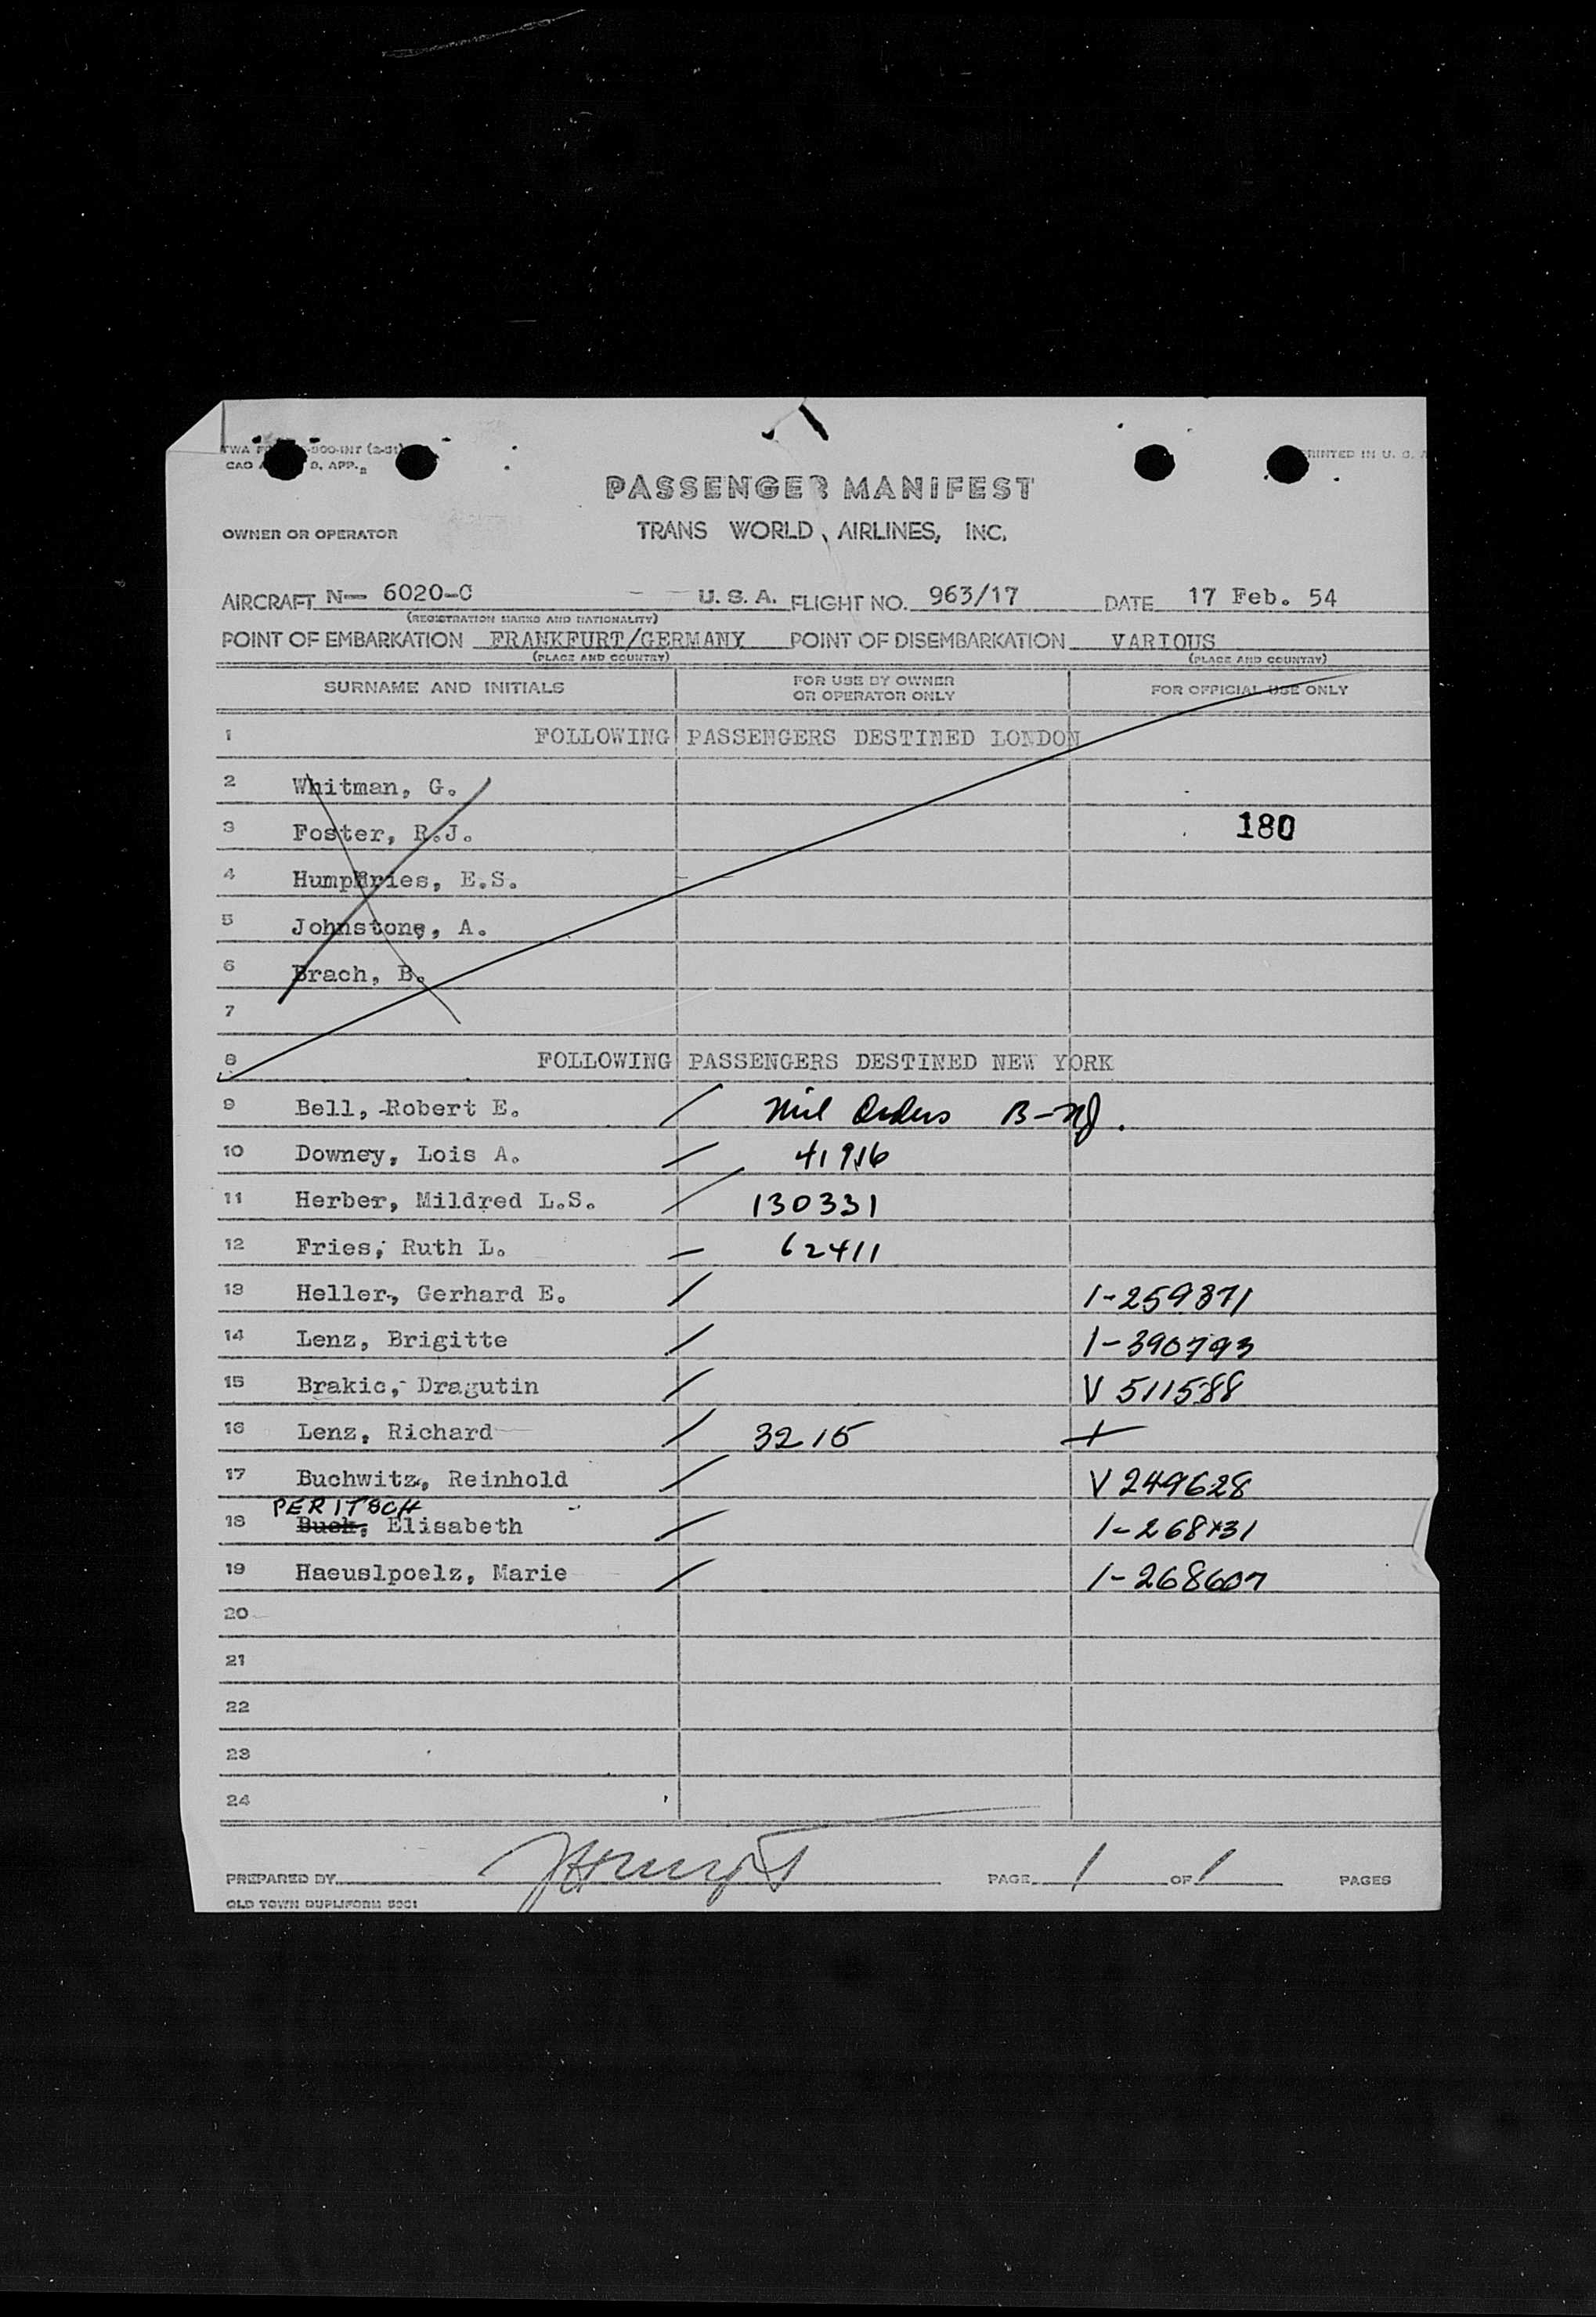 TWA F -300-INT (2-51)
CAO A D. APP.
PRINTED IN U. S. A
PASSENGER MANIFEST
OWNER OR OPERATOR TRANS WORLD AIRLINES, INC.
AIRCRAFT N— 6020-C U. S. A. FLIGHT NO. 963/17 DATE 17 Feb. 54
(REGISTRATION MARKS AND NATIONALITY)
POINT OF EMBARKATION FRANKFURT/GERMANY POINT OF DISEMBARKATION VARIOUS
(PLACE AND COUNTRY) (PLACE AND COUNTRY)
SURNAME AND INITIALS FOR USE BY OWNER OR OPERATOR ONLY FOR OFFICIAL USE ONLY
1 FOLLOWING PASSENGERS DESTINED LONDON
2 Whitman, G.
3 Foster, R.J. 180
4 Humphries, E.S.
5 Johnstone, A.
6 Brach, B.
7
8 FOLLOWING PASSENGERS DESTINED NEW YORK
9 Bell, Robert E. / Mil Orders B-
10 Downey, Lois A. / 41916
11 Herber, Mildred L.S. / 130331
12 Fries, Ruth L. — 62411
13 Heller, Gerhard E. / 1-259871
14 Lenz, Brigitte / 1-390793
15 Brakic, Dragutin / V 511588
16 Lenz, Richard / 3215 +
17 Buchwitz, Reinhold / V 249628
PERITSCH
18 Buck, Elisabeth / 1-268731
19 Haeuslpoelz, Marie / 1-268607
20
21
22
23
24
PREPARED BY PAGE 1 OF 1 PAGES
OLD TOWN DUPLIFORM 5001